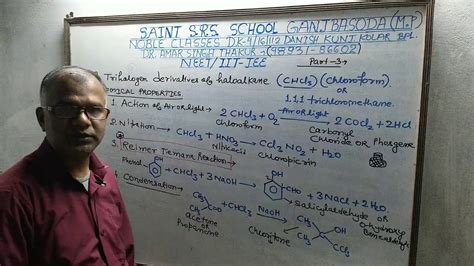 SAINT S.R.S. SCHOOL GANJBASODA (M.P)
NOBLE CLASSES D.K. DANISH KUNJ KOLAR BPL.
DR. AMAR SINGH THAKUR
NEET/IIT-JEE
Part-3
Trihalogen derivatives of haloalkane (CHCl3) (Chloroform)
OR
1,1,1 trichloromethane
CHEMICAL PROPERTIES
1. Action of Air or light → 2CHCl3 + O2 Air or light → 2COCl2 + 2HCl
Chloroform
Carbonyl Chloride or Phosgene
2. Nitration → CHCl3 + HNO3 → CCl3NO2 + H2O
Nitric acid Chloropicrin
3. Reimer Tiemann Reaction →
Phenol OH + CHCl3 + 3NaOH → OH CHO + 3NaCl + 2H2O
Salicylaldehyde or O-hydroxy Benzaldehyde
4. Condensation →
+ CHCl3 NaOH →
acetone
OR
Propanone
OH
CCl3